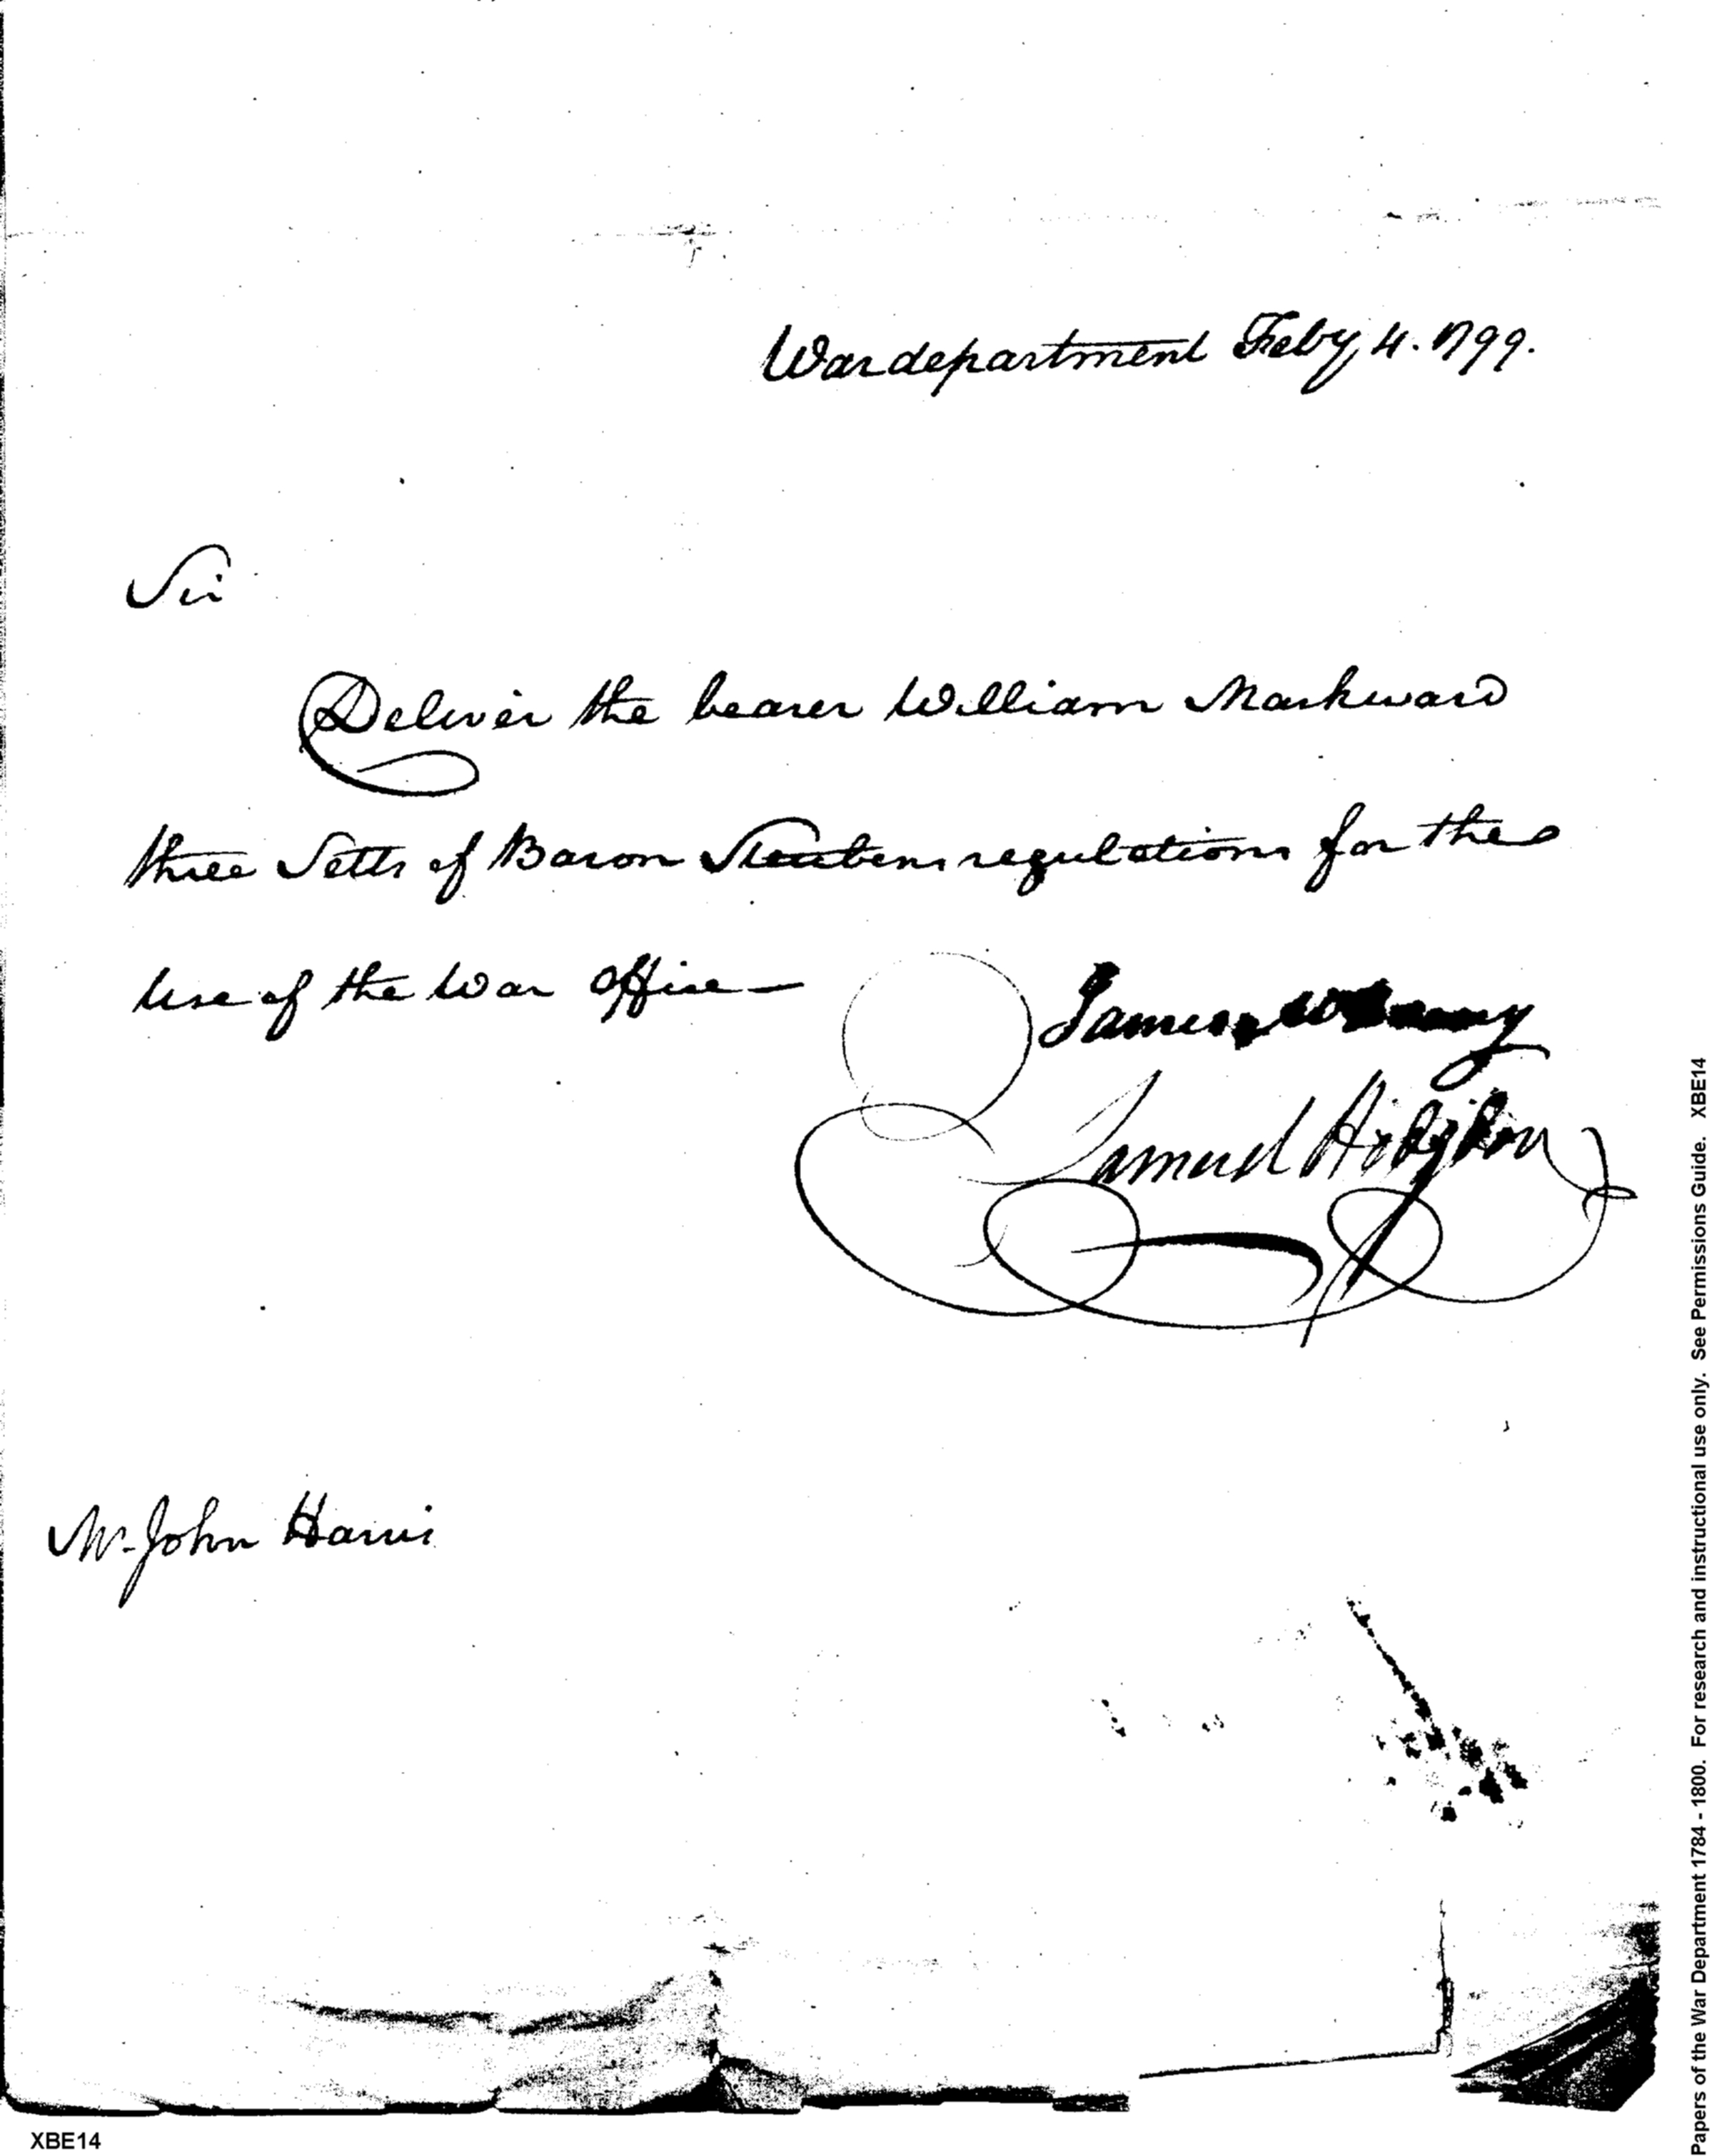 War department Feby 4. 1799.
Sir
Deliver the bearer William Markward
three Setts of Baron Steubens regulations for the
Use of the War Office —
James
Samuel Hodgdon
Mr. John Harris
XBE14
Papers of the War Department 1784 - 1800. For research and instructional use only. See Permissions Guide. XBE14